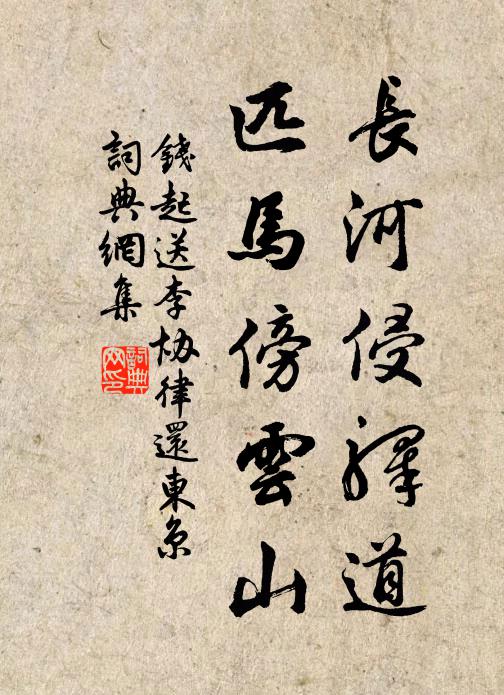 長河侵驛道
匹馬傍雲山
錢起送李協律還東京
詞典網集
詞典網印